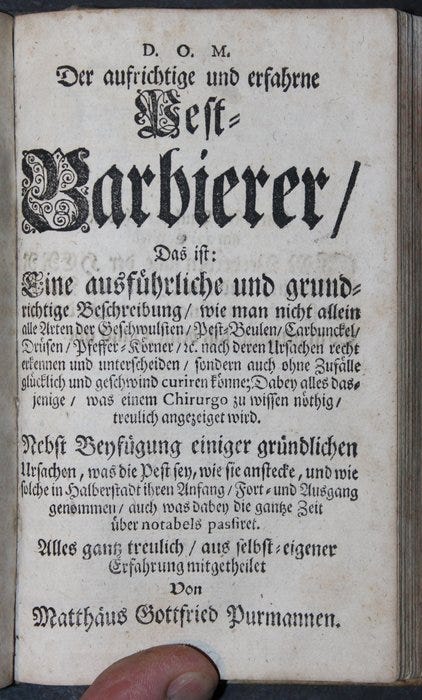 D. O. M.
Der aufrichtige und erfahrne
Pest-
Barbierer/
Das ist:
Eine ausführliche und grund-
richtige Beschreibung/ wie man nicht allein
alle Arten der Geschwulsten/ Pest-Beulen/ Carbunckel/
Drüsen/ Pfeffer-Körner/ ꝛc. nach deren Ursachen recht
erkennen und unterscheiden/ sondern auch ohne Zufälle
glücklich und geschwind curiren könne; Dabey alles das-
jenige/ was einem Chirurgo zu wissen nöthig/
treulich angezeiget wird.
Nebst Beyfügung einiger gründlichen
Ursachen, was die Pest sey, wie sie anstecke, und wie
solche in Halberstadt ihren Anfang/ Fort- und Ausgang
genommen/ auch was dabey die gantze Zeit
über notabels passiret.
Alles gantz treulich/ aus selbst-eigener
Erfahrung mitgetheilet
Von
Matthäus Gottfried Purmannen.